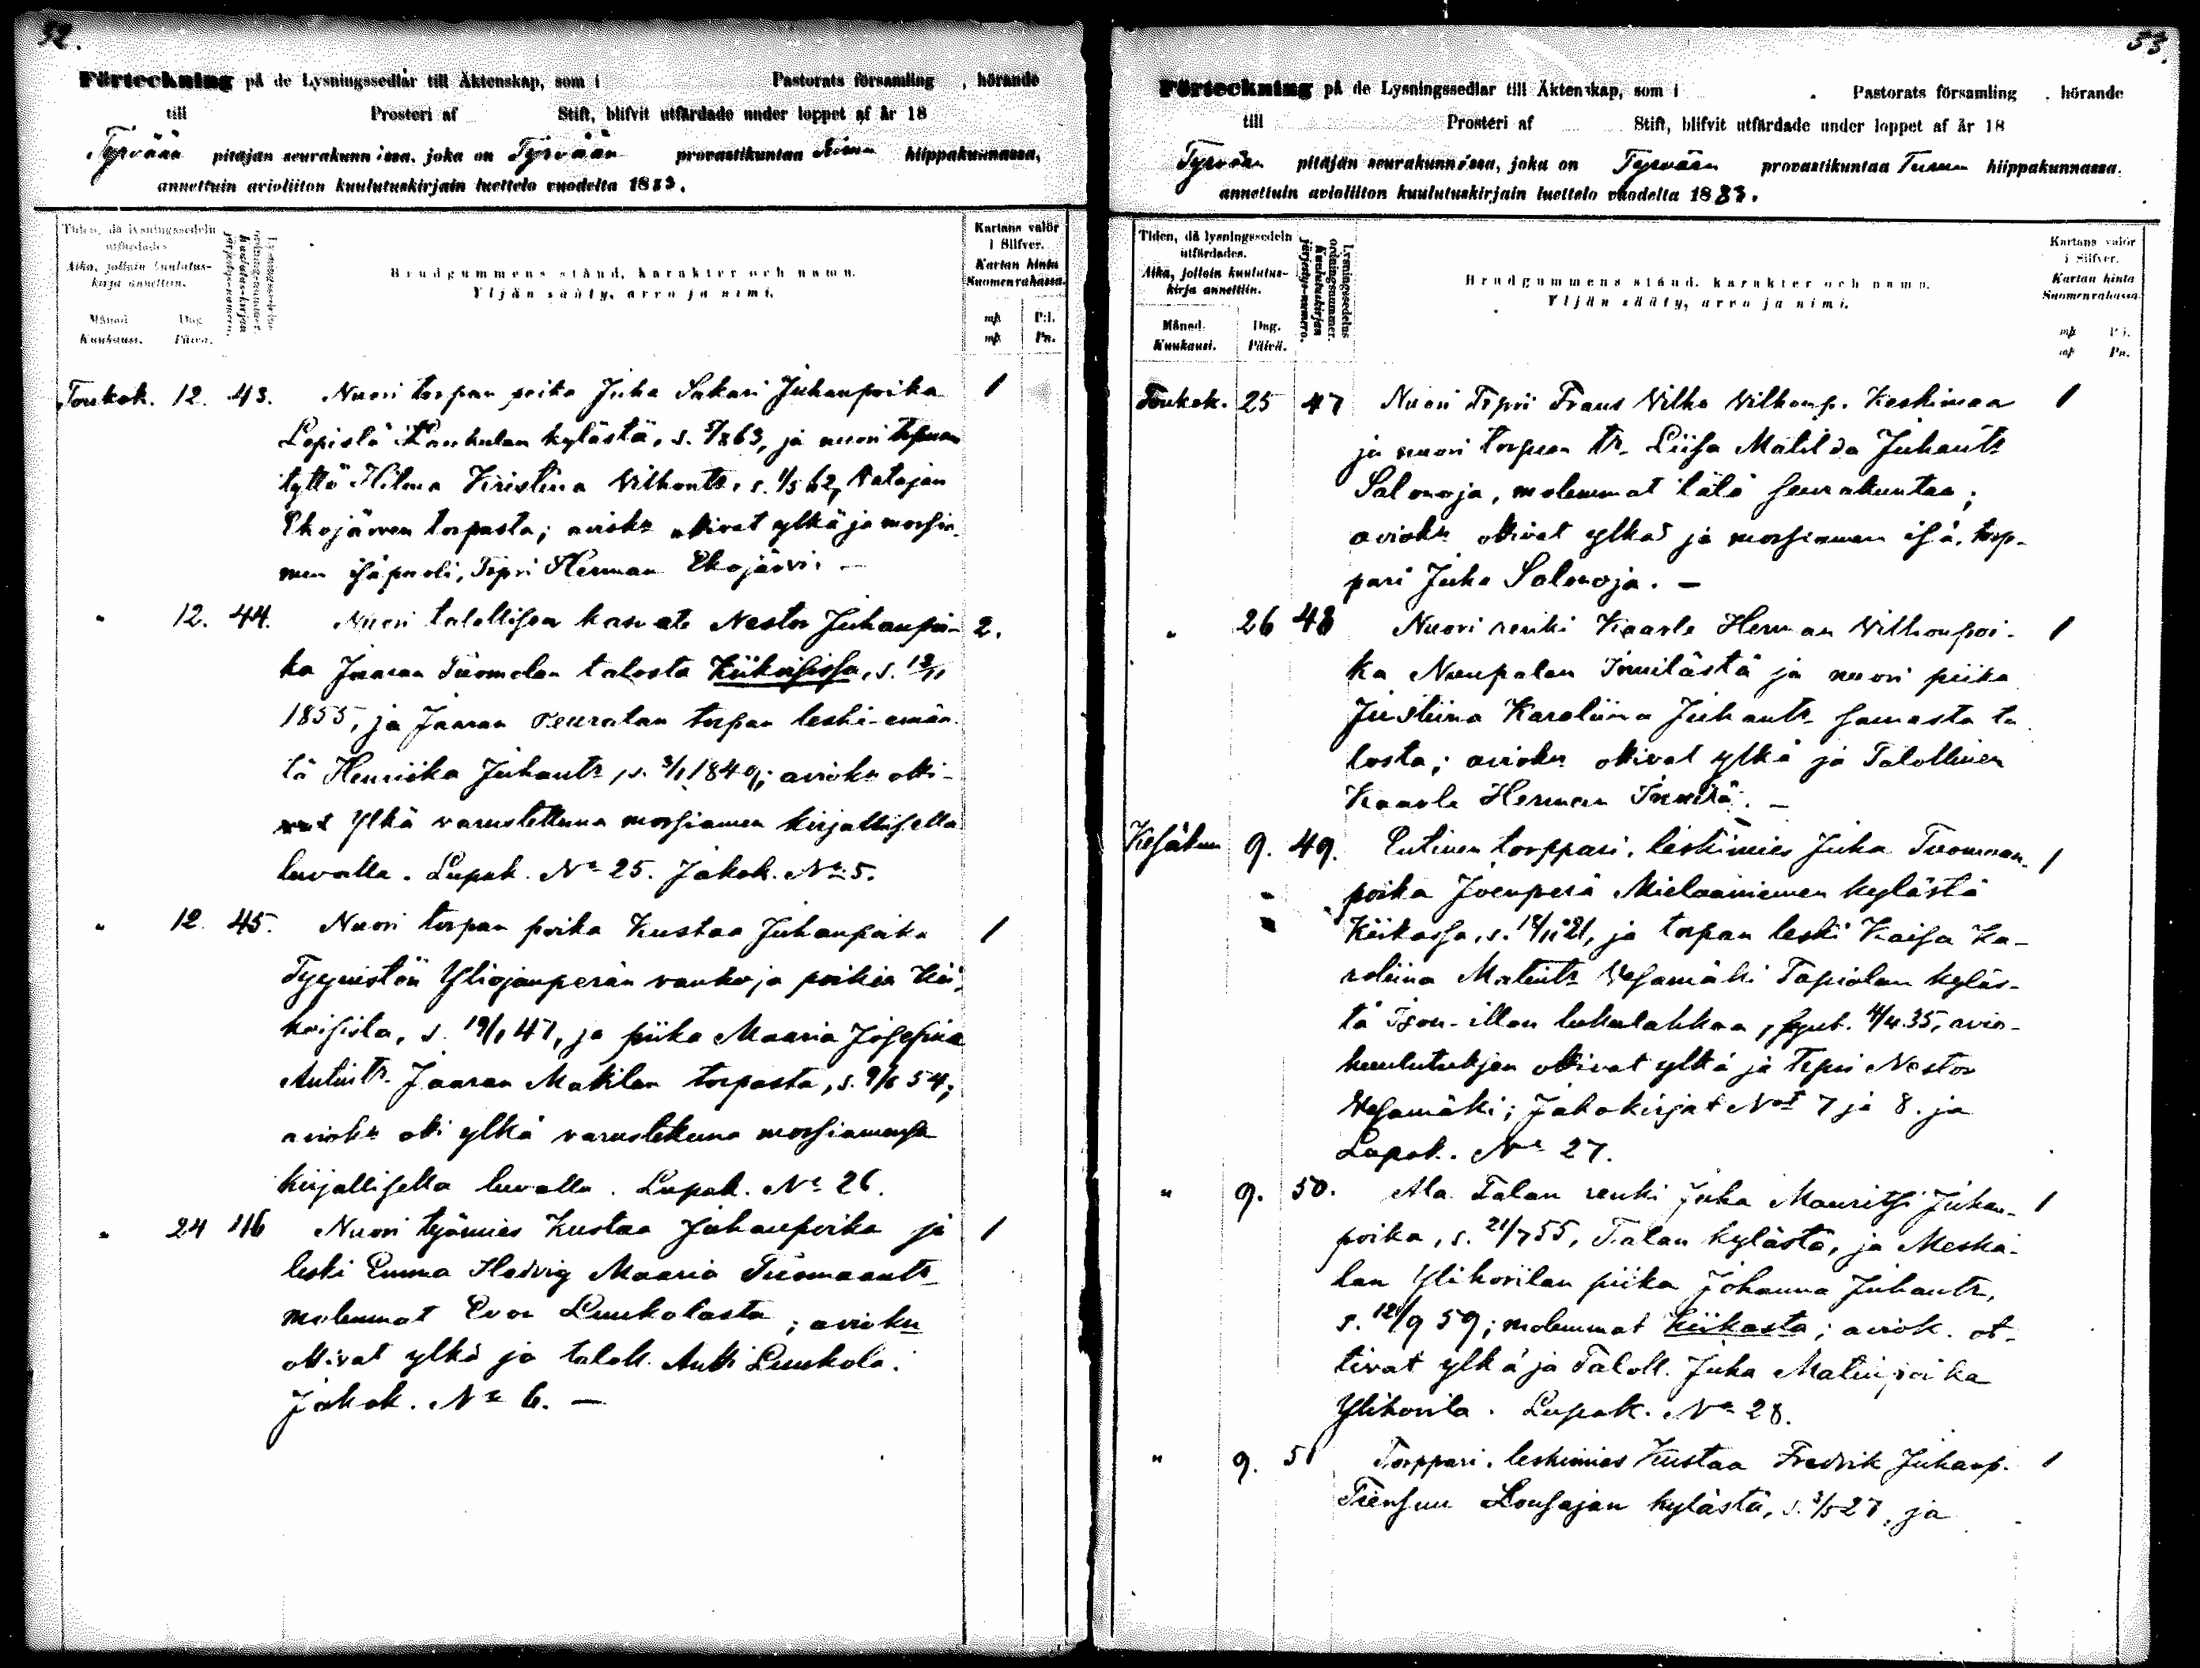 52.
Förteckning på de Lysningssedlar till Äktenskap, som i Pastorats församling , hörande
till Prosteri af Stift, blifvit utfärdade under loppet af år 18
Tyrvään pitäjän seurakunnissa, joka on Tyrvään provastikuntaa Turun hiippakunnassa,
annettuin avioliiton kuulutuskirjain luettelo vuodelta 1883.
Tiden, då lysningssedeln utfärdades.
Aika, jolloin kuulutus-
kirja annettiin.
Månad. Dag.
Kuukausi. Päivä.
Lysningssedelns ordningsnummer.
Kuulutuskirjan järjestys-numero.
Brudgummens stånd, karakter och namn.
Yljän sääty, arvo ja nimi.
Kartans valör
i Silfver.
Kartan hinta
Suomenrahassa.
mk P:i.
mk Pn.
Toukok. 12. 43. Nuori torpan poika Juha Sakari Juhanpoika 1
Lepistö Kaukulan kylästä, s. 5/8 63, ja nuori torpan
tyttö Hilma Kristiina Vilhontr, s. 1/5 62, Ratajan
Ekojärven torpasta; aviokr ottivat ylkä ja morsia-
men isäpuoli, Torpri Herman Ekojärvi. —
" 12. 44. Nuori talollisen kasvate Nestor Juhanpoi- 2.
ka Jaaran Tuomolan talosta Kiikoisissa, s. 12/11
1855, ja Jaaran Peuralan torpan leski-emän-
tä Henriika Juhantr, s. 3/1 1849; aviokr otti-
vat Ylkä varustettuna morsiamen kirjallisella
luvalla. Lupak. No 25. Jakok. No 5.
" 12. 45. Nuori torpan poika Kustaa Juhanpoika 1
Tyynistön Yliojanperän vanhoja poikia Kii-
koisista, s. 19/1 47, ja piika Maaria Josefina
Antintr. Jaaran Makilan torpasta, s. 9/6 54;
aviokr otti ylkä varustettuna morsiamensa
kirjallisella luvalla. Lupak. No 26.
" 24 46 Nuori työmies Kustaa Juhanpoika ja 1
leski Emma Hedvig Maaria Tuomaantr
molemmat Evon Luukolasta; avioku
ottivat ylkä ja taloll. Antti Luukola.
Jakok. No 6. —
53.
Förteckning på de Lysningssedlar till Äktenskap, som i Pastorats församling , hörande
till Prosteri af Stift, blifvit utfärdade under loppet af år 18
Tyrvään pitäjän seurakunnissa, joka on Tyrvään provastikuntaa Turun hiippakunnassa.
annettuin avioliiton kuulutuskirjain luettelo vuodelta 1883.
Tiden, då lysningssedeln
utfärdades.
Aika, jolloin kuulutus-
kirja annettiin.
Månad. Dag.
Kuukausi. Päivä.
Lysningssedelns ordningsnummer.
Kuulutuskirjan järjestys-numero.
Brudgummens stånd, karakter och namn.
Yljän sääty, arvo ja nimi.
Kartans valör
i Silfver.
Kartan hinta
Suomenrahassa.
mk P:i.
mk Pn.
Toukok. 25 47 Nuori Torpri Frans Vilho Vilhonp. Keskimaa 1
ja nuori torpan tr. Liisa Matilda Juhantr
Salonoja, molemmat tätä seurakuntaa;
aviokr ottivat ylkä ja morsiamen isä, torp-
pari Juha Salonoja. —
" 26 48 Nuori renki Kaarle Herman Vilhonpoi- 1
ka Nuupalan Innilästä ja nuori piika
Justiina Karoliina Juhantr samasta ta
losta; aviokr ottivat ylkä ja Talollinen
Kaarle Herman Innilä. —
Kesäkuu 9. 49. Entinen torppari, leskimies Juha Tuomaan- 1
poika Joenperä Mielaanniemen kylästä
Kiikassa, s. 18/12 21, ja torpan leski Kaisa Ka-
roliina Matintr Vesamäki Tapiolan kyläs-
tä Ison-illon lukulahkoa, synt. 4/4 35, avio-
kuulutuksen ottivat ylkä ja torpri Nestor
Vesamäki; Jakokirjat Not 7 ja 8. ja
Lupak. No 27.
" 9. 50. Ala Talan renki Juha Mauritsi Juhan- 1
poika, s. 21/7 55, Talan kylästä, ja Meskä-
lan Ylihorilan piika Johanna Juhantr,
s. 12/9 59; molemmat Kiikasta; aviok. ot-
tivat ylkä ja Taloll. Juha Matinpoika
Ylihorila. Lupak. No 28.
" 9. 51 Torppari, leskimies Kustaa Fredrik Juhanp. 1
Tiensuu Lousajan kylästä, s. 3/5 27, ja